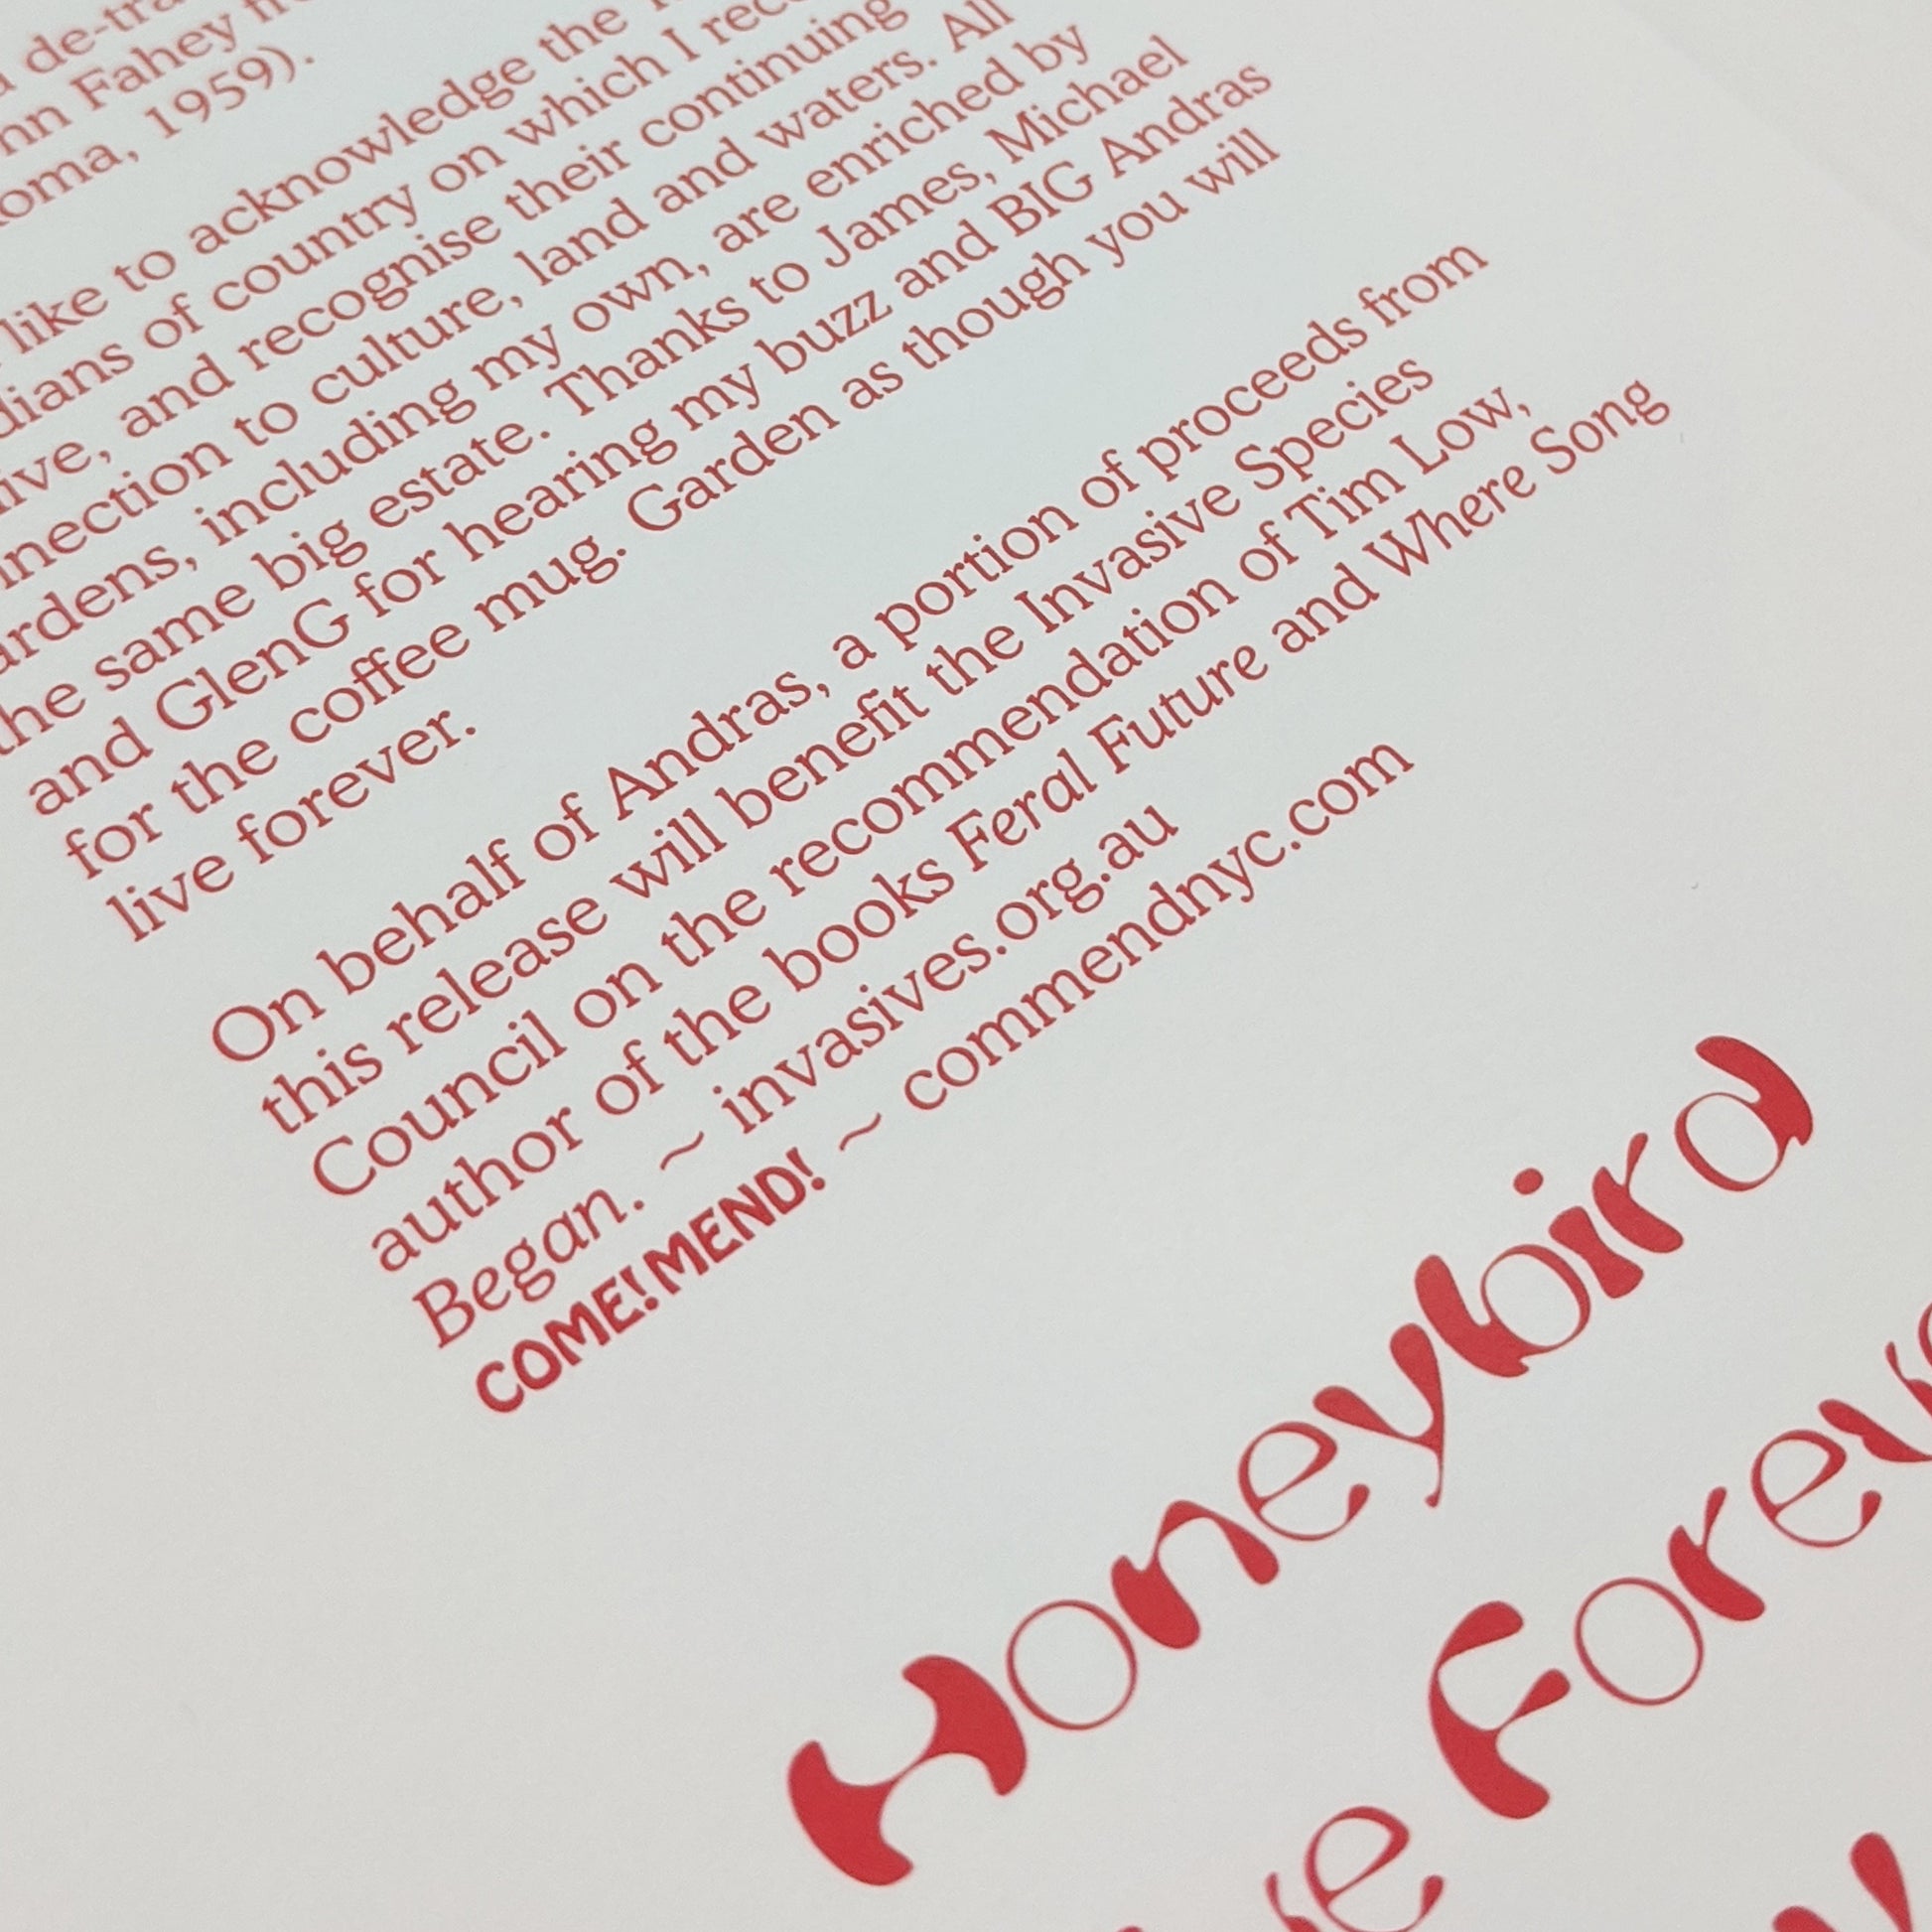 de-tra
nn Fahey
oma, 1959).
like to acknowledge the
dians of country on which I reco
ive, and recognise their continuing
nnection to culture, land and waters. All
ardens, including my own, are enriched by
the same big estate. Thanks to James, Michael
and GlenG for hearing my buzz and BIG Andras
for the coffee mug. Garden as though you will
live forever.
On behalf of Andras, a portion of proceeds from
this release will benefit the Invasive Species
Council on the recommendation of Tim Low,
author of the books Feral Future and Where Song
Began. ~ invasives.org.au
COME! MEND! ~ commendnyc.com
Honeybird
ve Foreve